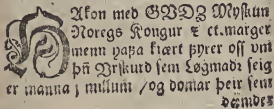 HAkon med GVDZ Myskun
Noregs Kongur ⁊ ct. marger
menn haƿa kiært ƿyrer oss vm
þn̄ Vrskurd sem Løgmadr seig
er manna j millum / og domar þeir sem
dæmder